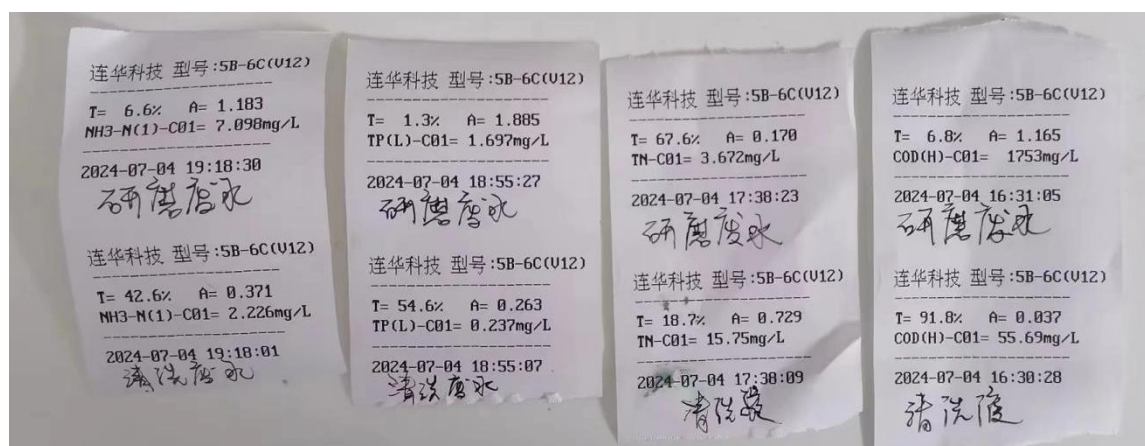 连华科技 型号:5B-6C(V12)
T= 6.6% A= 1.183
NH3-N(1)-C01= 7.098mg/L
2024-07-04 19:18:30
研磨废水
连华科技 型号:5B-6C(V12)
T= 42.6% A= 0.371
NH3-N(1)-C01= 2.226mg/L
2024-07-04 19:18:01
清洗废水
连华科技 型号:5B-6C(V12)
T= 1.3% A= 1.885
TP(L)-C01= 1.697mg/L
2024-07-04 18:55:27
研磨废水
连华科技 型号:5B-6C(V12)
T= 54.6% A= 0.263
TP(L)-C01= 0.237mg/L
2024-07-04 18:55:07
清洗废水
连华科技 型号:5B-6C(V12)
T= 67.6% A= 0.170
TN-C01= 3.672mg/L
2024-07-04 17:38:23
研磨废水
连华科技 型号:5B-6C(V12)
T= 18.7% A= 0.729
TN-C01= 15.75mg/L
2024-07-04 17:38:09
清洗
连华科技 型号:5B-6C(V12)
T= 6.8% A= 1.165
COD(H)-C01= 1753mg/L
2024-07-04 16:31:05
研磨废水
连华科技 型号:5B-6C(V12)
T= 91.8% A= 0.037
COD(H)-C01= 55.69mg/L
2024-07-04 16:30:28
清洗